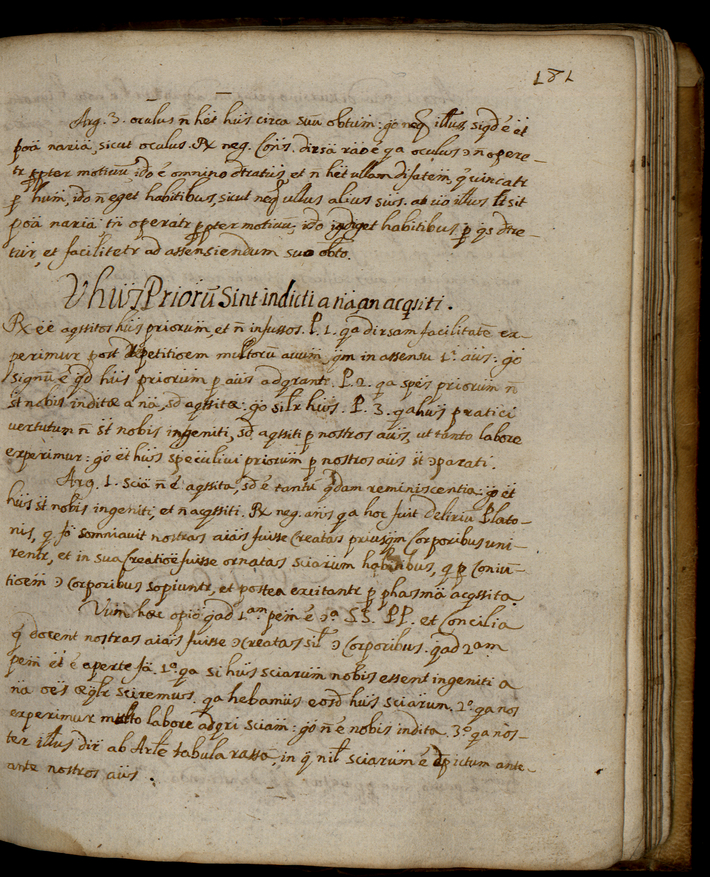 181
Arg. 3. oculus ñ hẽt hũs circa suũ obtum: g̃o neq̃ illtus, siqd̃ ẽ ẽt
poã nariã, sicut oculus. Rx neg. Cons. dirsã raõ ẽ q̃a oculus ɔ ñ opere-
tr p̃pter motiuũ, id̃o ẽ omnino dtratus, et ñ hẽt ullam
p̃ hũm, id̃o ñ eget habitibus, sicut neq̃ ullus alius sũs. at uio illtus lt̃ sit
poã nariã tñ operatr p̃pter motiuũ, id̃o indiget habitibus p̃ q̃s dtre-
tur, et facilitetr ad assensiendum suo obto.
V hũs Priorũ Sint indicti a nã an acqsiti.
Rx ẽẽ aqssitos hũs priorum, et ñ infussos. P. 1. q̃a dirsam facilitatẽ ex-
perimur post repetitioẽm multorũ auum, q̃m in assensu 1º. aũs: g̃o
signũ ẽ q̃d hũs priorum p̃ aũs adqrantr. P. 2. q̃a spes priorum ñ
st̃ nobis inditæ a nã, sd̃ aqssitæ: g̃o silr hũs. P. 3. q̃a hũs pratici
uertutum ñ st̃ nobis ingeniti, sd̃ aqssiti p̃ nostros aũs, ut tanto labore
experimur: g̃o ẽt hũs speculiui priorum p̃ nostros aũs st̃ ɔparati.
Arg. 1. sciã ñ ẽ aqssita, sd̃ ẽ tantũ q̃dam reminiscentia: g̃o ẽt
hũs st̃ nobis ingeniti, et ñ acqssiti. Rx neg. añs q̃a hoc fuit deliriũ Plato-
nis, q̃ somniauit nostras aĩas fuisse Creatas priusq̃m Corporibus uni-
rentr, et in sua Creatioẽ fuisse ornatas sciarum habitibus, q̃ p̃ coniũ-
tioẽm ɔ Corporibus sopiuntr, et postea excitantr p̃ phasmã acqssita.
Vum hæc opiõ q̃ad 1.am pem ẽ ɔª SS. PP. et Concilia
q̃ docent nostras aĩas fuisse ɔcreatas sil̃ ɔ Corporibus. q̃ad 2am
pem ẽt ẽ aperte fã. 1º. q̃a si hũs sciarum nobis essent ingeniti a
nã oẽs æqlr sciremus. q̃a hebamus eosd̃ hũs sciarum. 2º. q̃a nos
experimur multo labore adqri sciam: g̃o ñ ẽ nobis indita. 3º q̃a nos-
ter illtus dir̃ ab Arle tabula rassa, in q̃ nil̃ sciarum ẽ depictum ante-
ante nostros aũs.